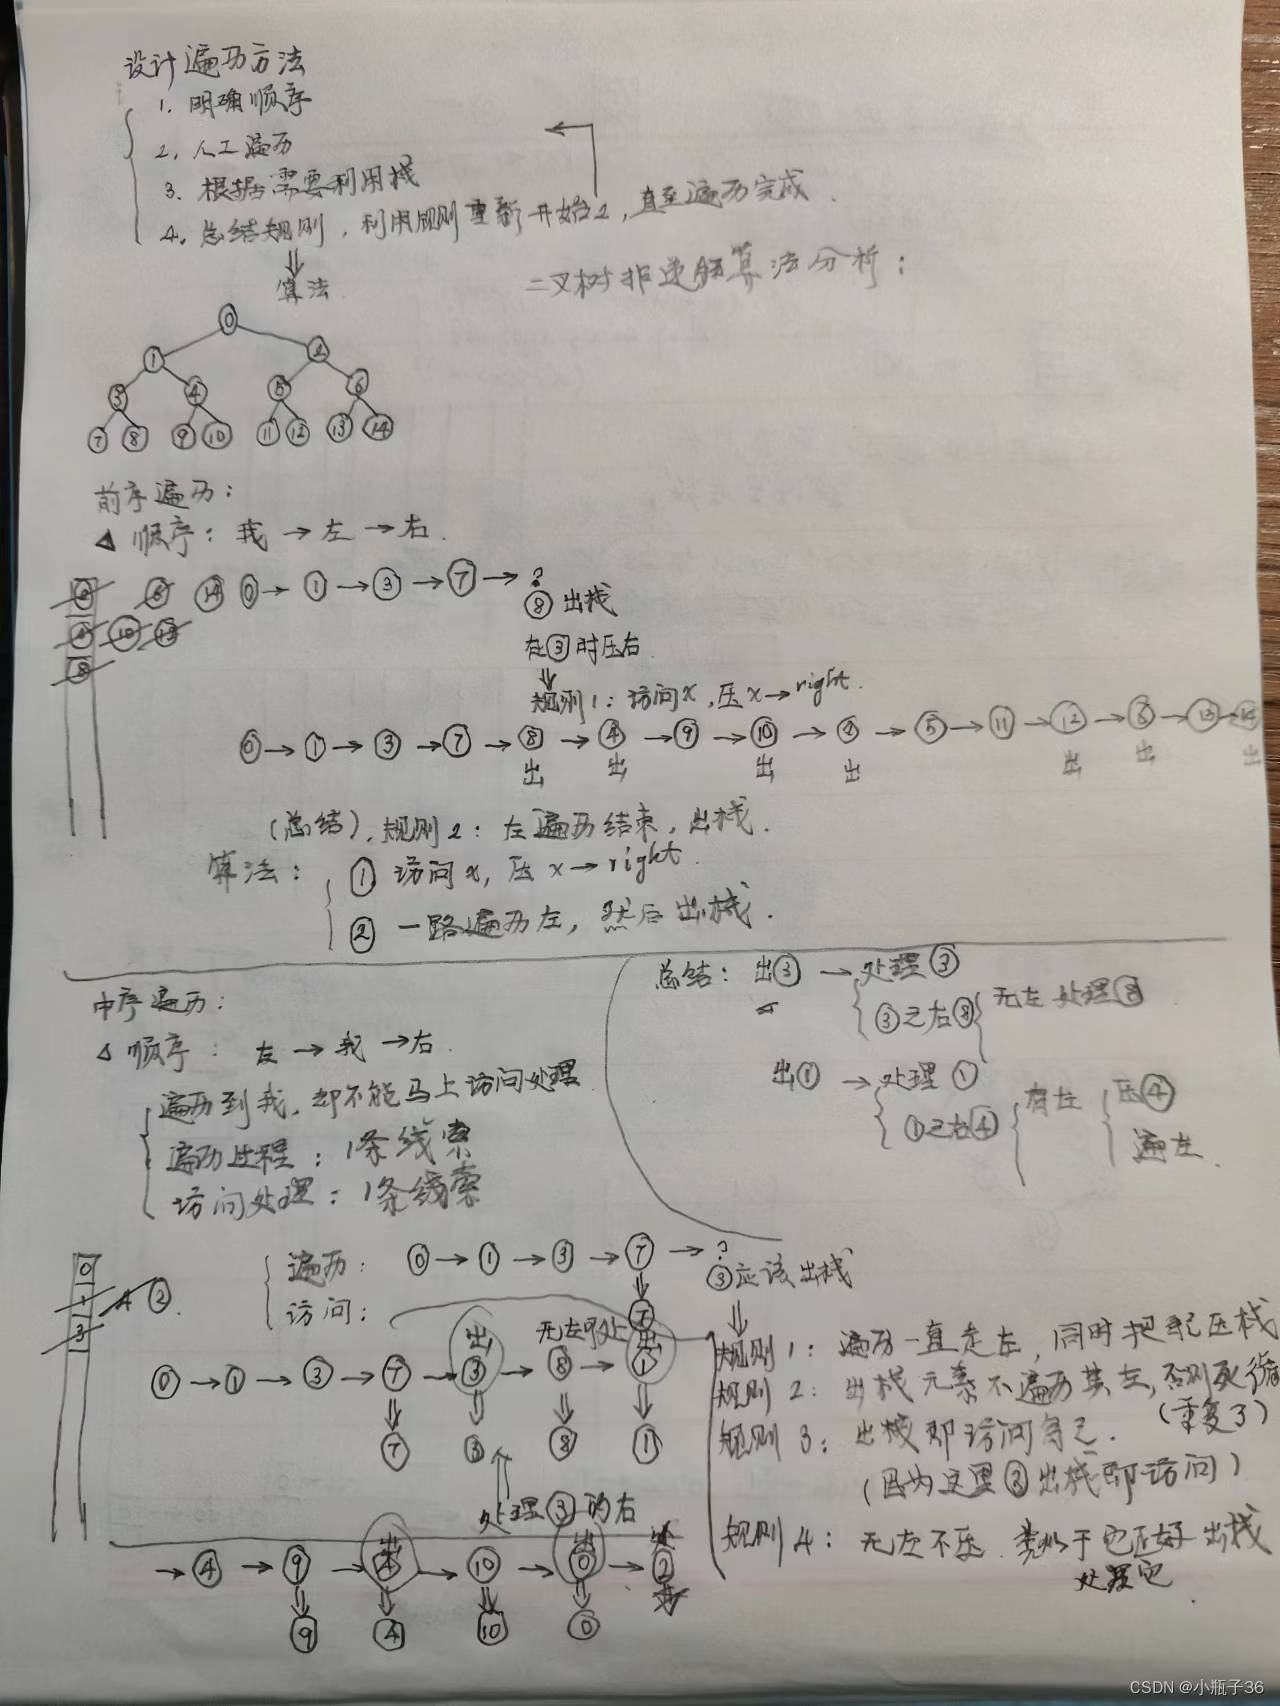 设计遍历方法
1. 明确顺序
2. 人工遍历
3. 根据需要利用栈
4. 总结规则，利用规则重新开始2，直至遍历完成.
⇓
算法
二叉树非递归算法分析：
0
1 2
3 4 5 6
7 8 9 10 11 12 13 14
前序遍历：
△ 顺序：我 → 左 → 右.
2 6 14
4 10 13
8
0 → 1 → 3 → 7 → ?
8 出栈
在③时压右
⇓
规则1：访问x，压x→right.
0 → 1 → 3 → 7 → 8 → 4 → 9 → 10 → 2 → 5 → 11 → 12 → 6 → 13 → 14
出 出 出 出 出 出 出
(总结)，规则2：左遍历结束，出栈.
算法：① 访问x，压x→right.
② 一路遍历左，然后出栈.
中序遍历：
△ 顺序：左 → 我 → 右.
遍历到我，却不能马上访问处理
遍历过程：1条线索
访问处理：1条线索
总结：出③ → 处理③
③之右⑧ 无左处理⑧
出① → 处理①
①之右④ 有左 压④
遍左.
0
1 4 2.
3
遍历：0 → 1 → 3 → 7 → ?
③应该出栈
访问：7
无左即处
出 出
0 → 1 → 3 → 7 → 3 → 8 → 1
7 3 8 1
处理③的右
出 出
→ 4 → 9 → 4 → 10 → 0 → 2
9 4 10 0
规则1：遍历一直走左，同时把我压栈
规则2：出栈元素不遍历其左，否则死循
(重复了)
规则3：出栈即访问自己.
(因为这里③出栈即访问)
规则4：无左不压. 类似于它正好出栈
处理它.
CSDN @小瓶子36